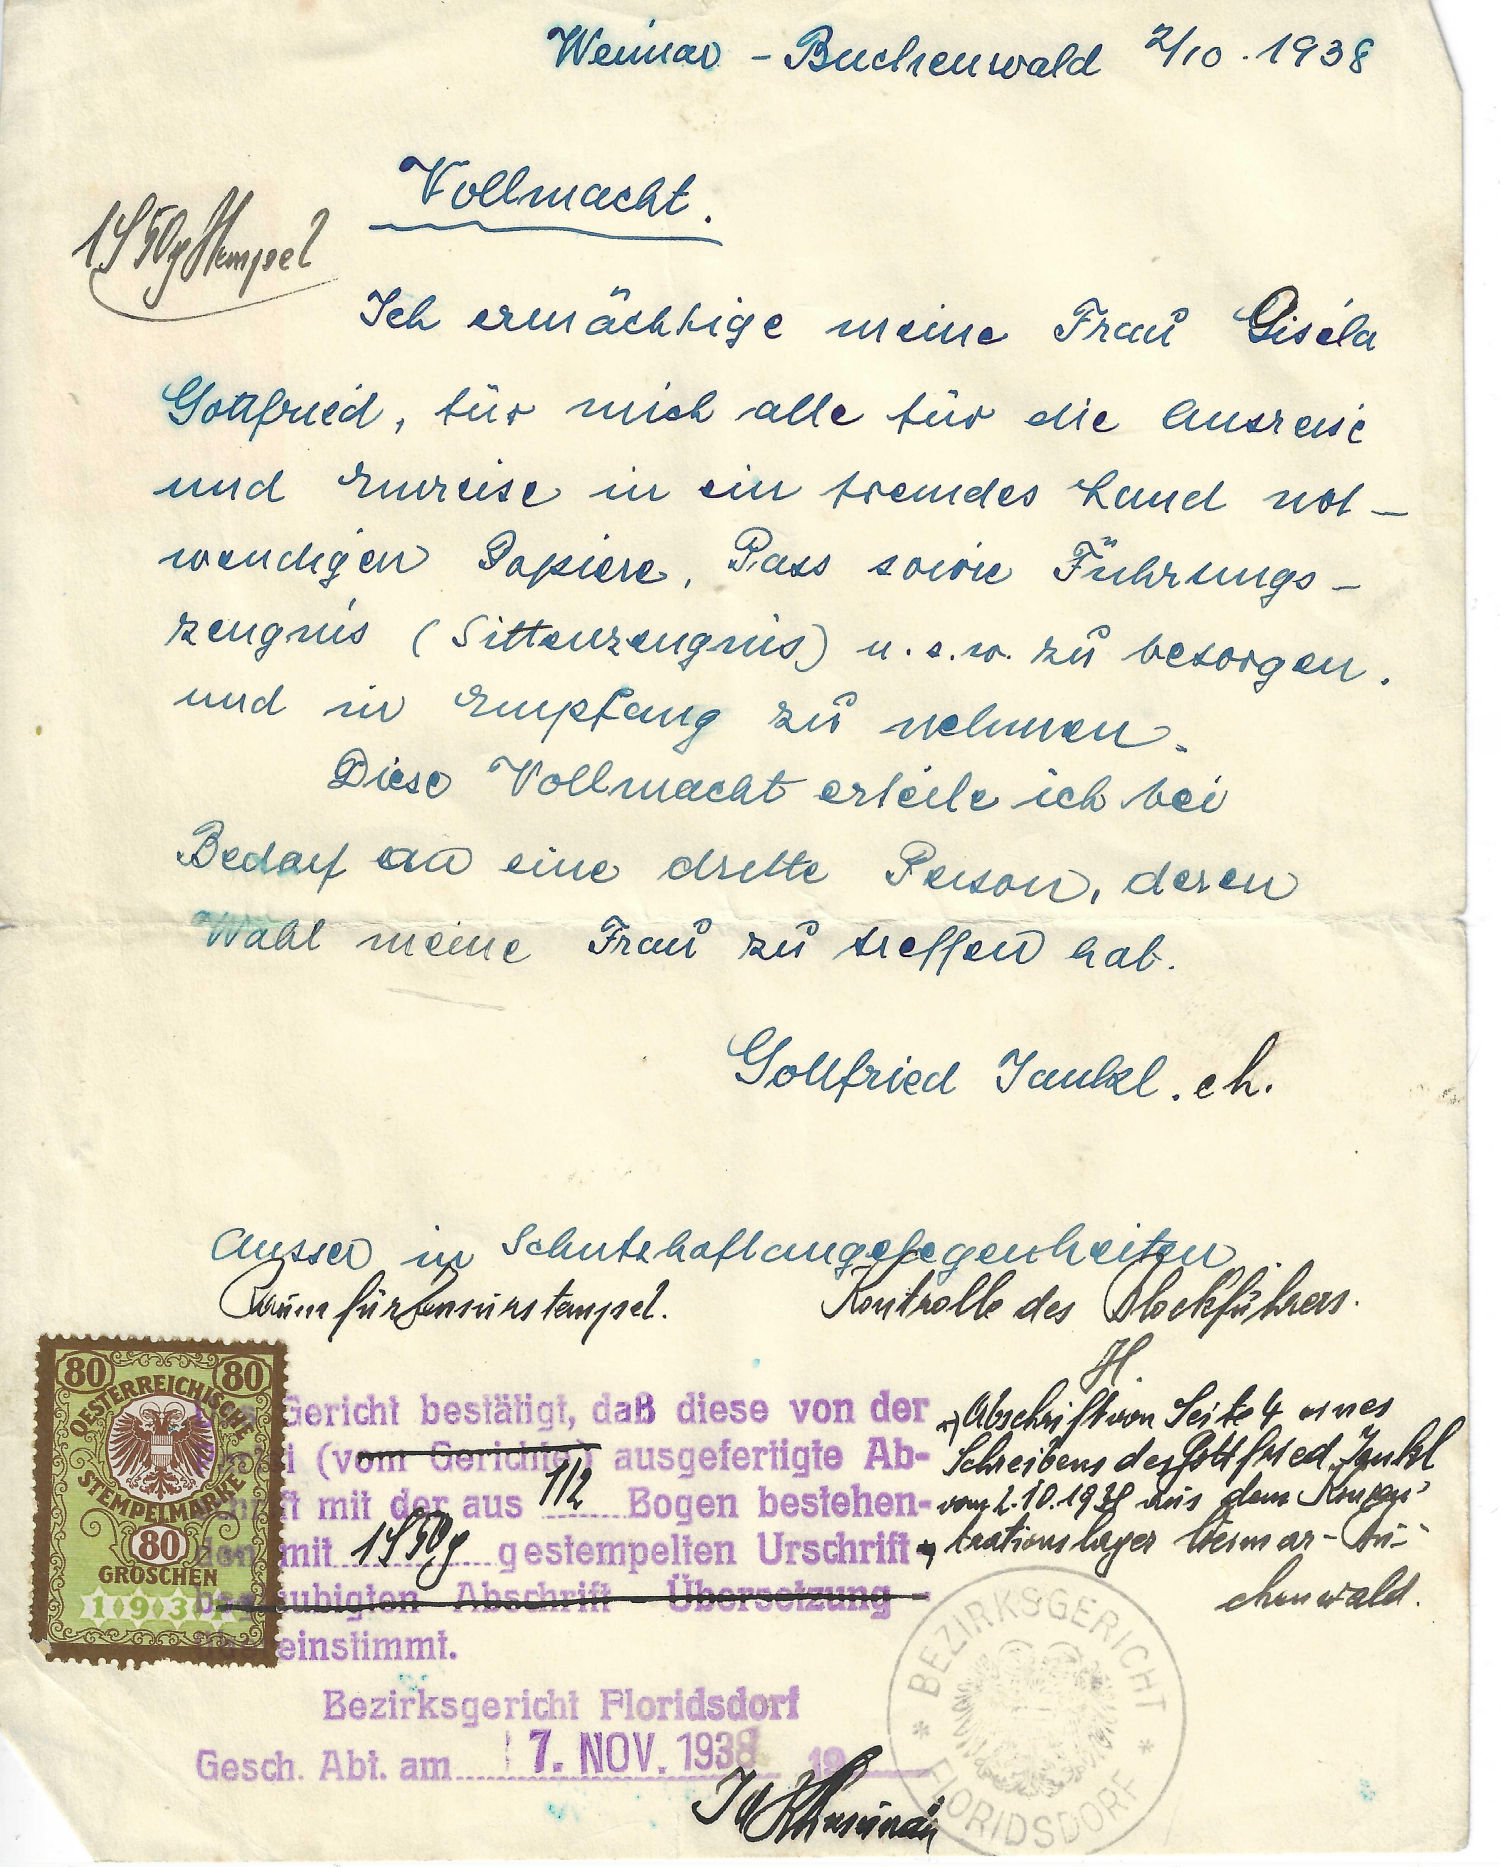 Weimar - Buchenwald 2/10. 1938
Vollmacht.
1S 50g Stempel
Ich ermächtige meine Frau Gisela
Gottfried, für mich alle für die Ausreise
und Einreise in ein fremdes Land not-
wendigen Papiere, Pass sowie Führungs-
zeugnis (Sittenzeugnis) u.s.w. zu besorgen.
und in Empfang zu nehmen.
Diese Vollmacht erteile ich bei
Bedarf an eine dritte Person, deren
Wahl meine Frau zu treffen hat.
Gottfried Jankl. eh.
Ausser in Schutzhaftangelegenheiten
Raum für Zensurstempel.
Kontrolle des Blockführers.
H.
80 80
OESTERREICHISCHE
STEMPELMARKE
80
GROSCHEN
193
Gericht bestätigt, daß diese von der
(vom Gerichte) ausgefertigte Ab-
schrift mit der aus 1/2 Bogen bestehen-
den mit 1S 50g gestempelten Urschrift
beglaubigten Abschrift - Übersetzung -
übereinstimmt.
Abschrift von Seite 4 eines
Schreibens des Gottfried Jankl
vom 2.10.1938 aus dem Konzen-
trationslager Weimar-Bu-
chenwald.
Bezirksgericht Floridsdorf
Gesch. Abt. am 7. NOV. 1938 19
BEZIRKSGERICHT
* FLORIDSDORF *